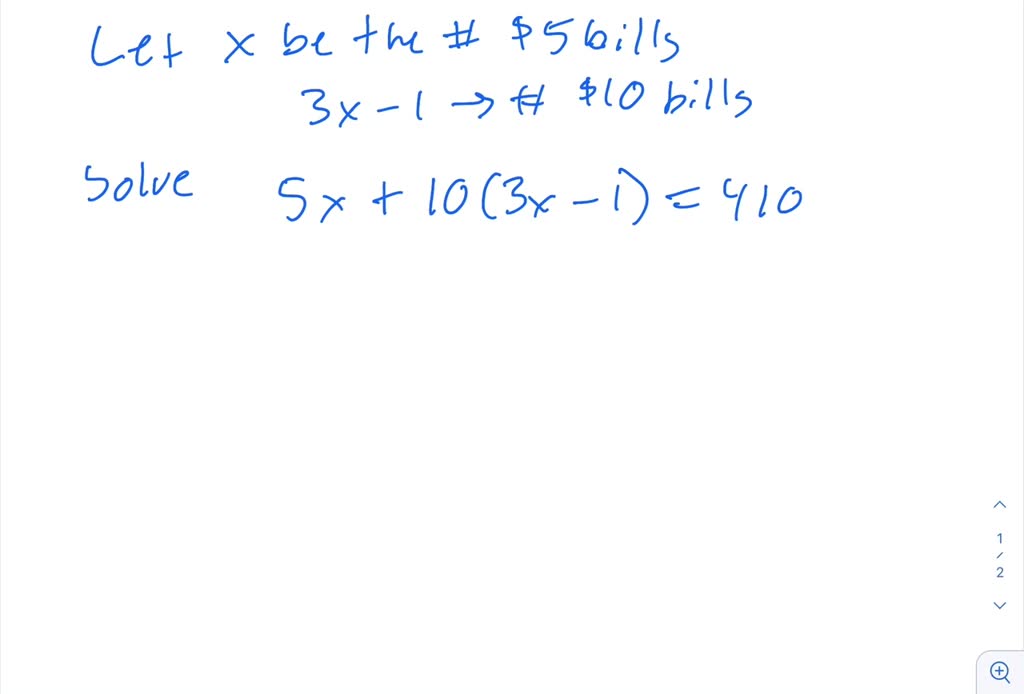 Let x be the # $5 bills
3x - 1 → # $10 bills
Solve 5x + 10(3x - 1) = 410
1
/
2